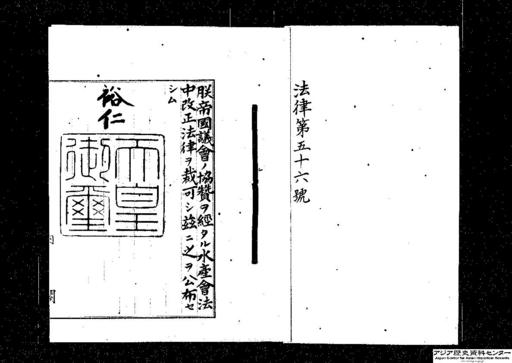 法律第五十六號
朕帝國議會ノ協贊ヲ經タル水產會法
中改正法律ヲ裁可シ茲ニ之ヲ公布セ
シム
裕仁
天皇
御璽
内閣
アジア歴史資料センター
Japan Center for Asian Historical Records